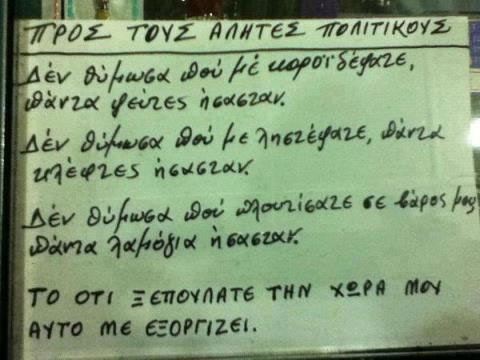 ΠΡΟΣ ΤΟΥΣ ΑΛΗΤΕΣ ΠΟΛΙΤΙΚΟΥΣ
Δέν θύμωσα πού μέ κοροϊδέψατε,
πάντα ψεύτες ήσασταν.
Δέν θύμωσα πού με ληστέψατε, πάντα
κλέφτες ήσασταν.
Δέν θύμωσα πού πλουτίσατε σε βάρος μας
πάντα λαμόγια ήσασταν.
ΤΟ ΟΤΙ ΞΕΠΟΥΛΑΤΕ ΤΗΝ ΧΩΡΑ ΜΟΥ
ΑΥΤΟ ΜΕ ΕΞΟΡΓΙΖΕΙ.